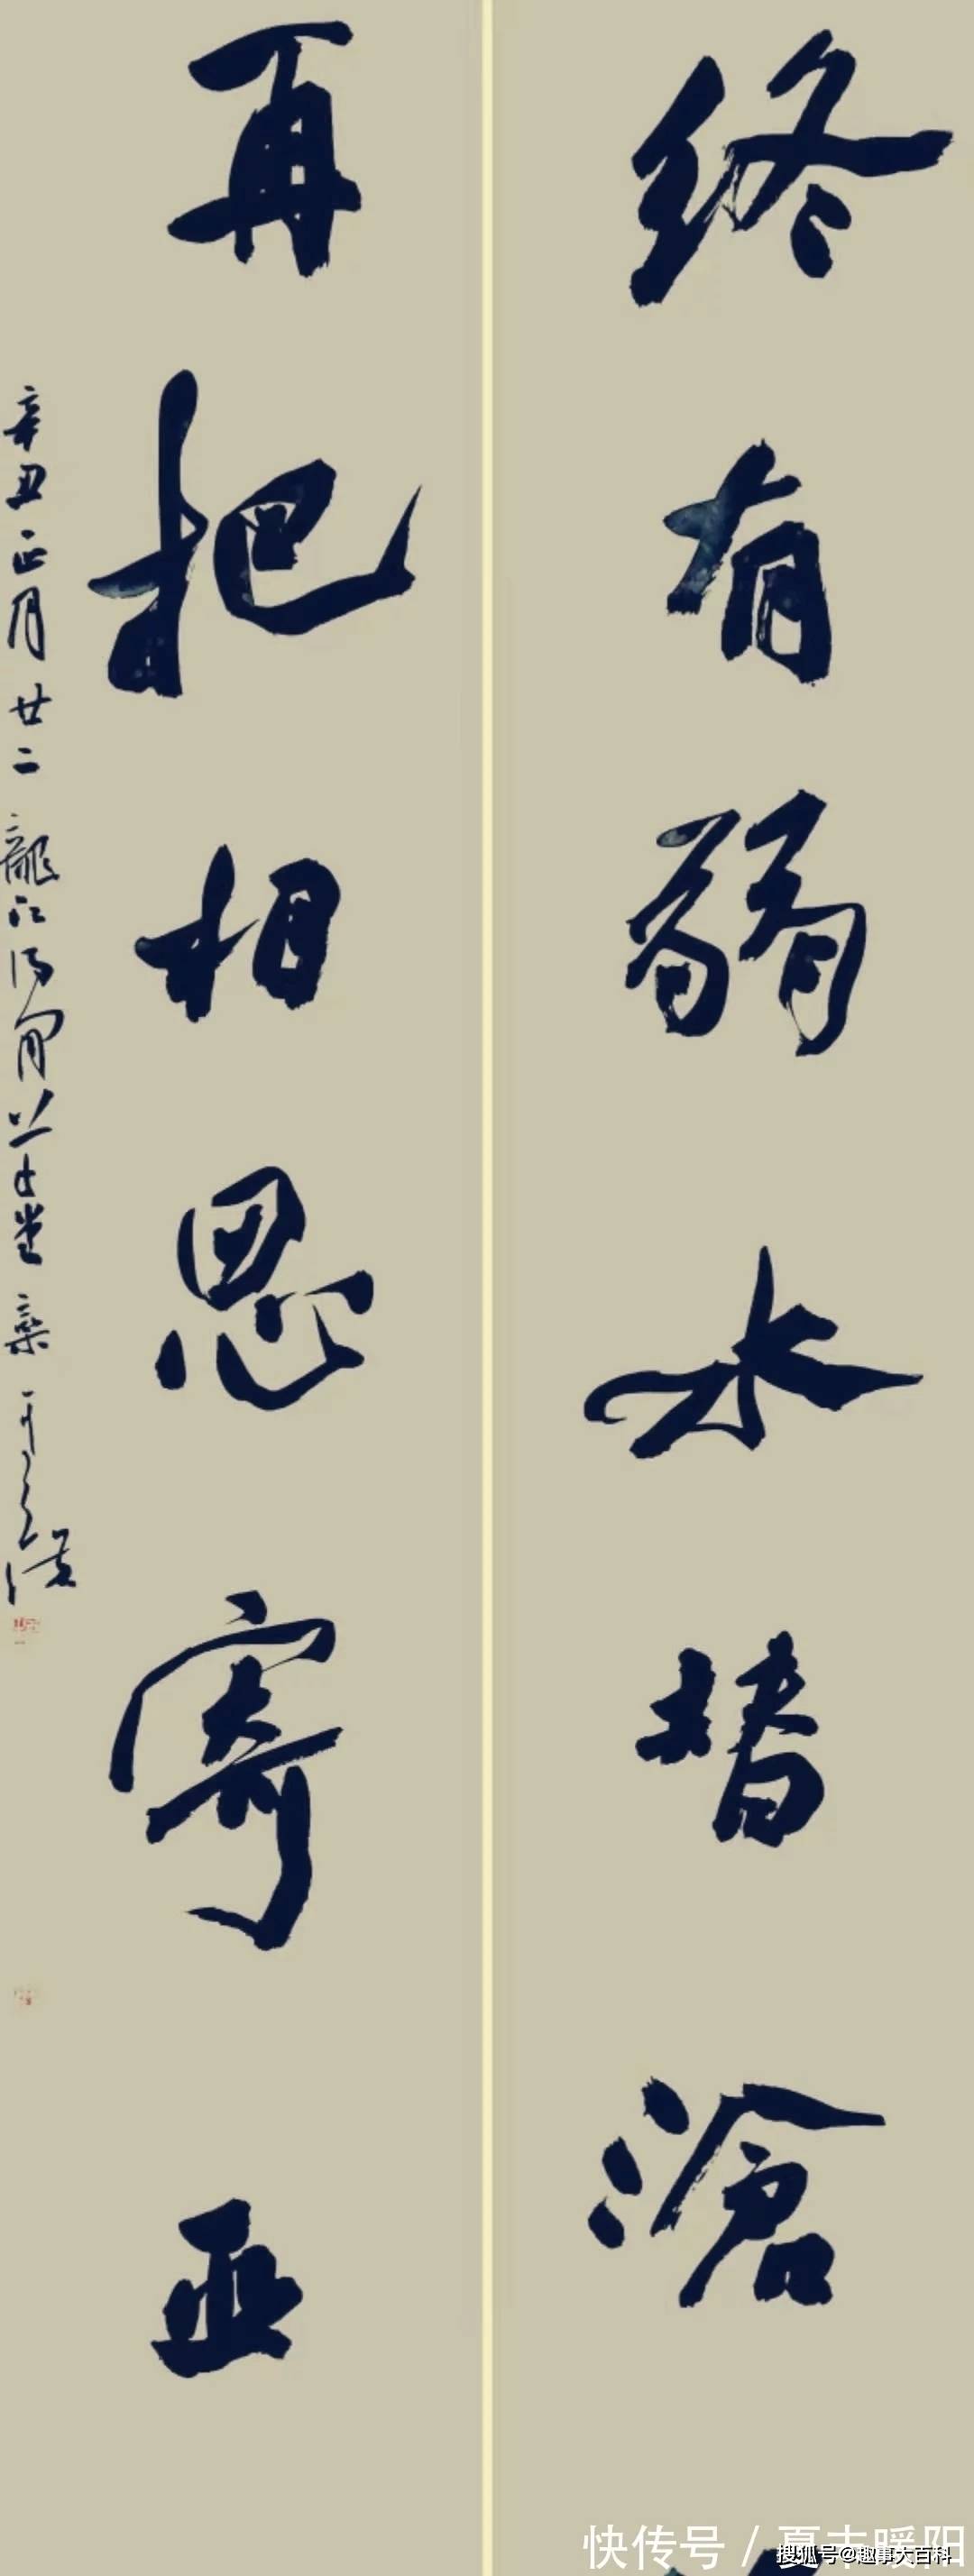 终有弱水替滄
再把相思寄巫
辛丑正月廿二 龍江
快传号 / 夏末暖阳
搜狐号@趣事大百科